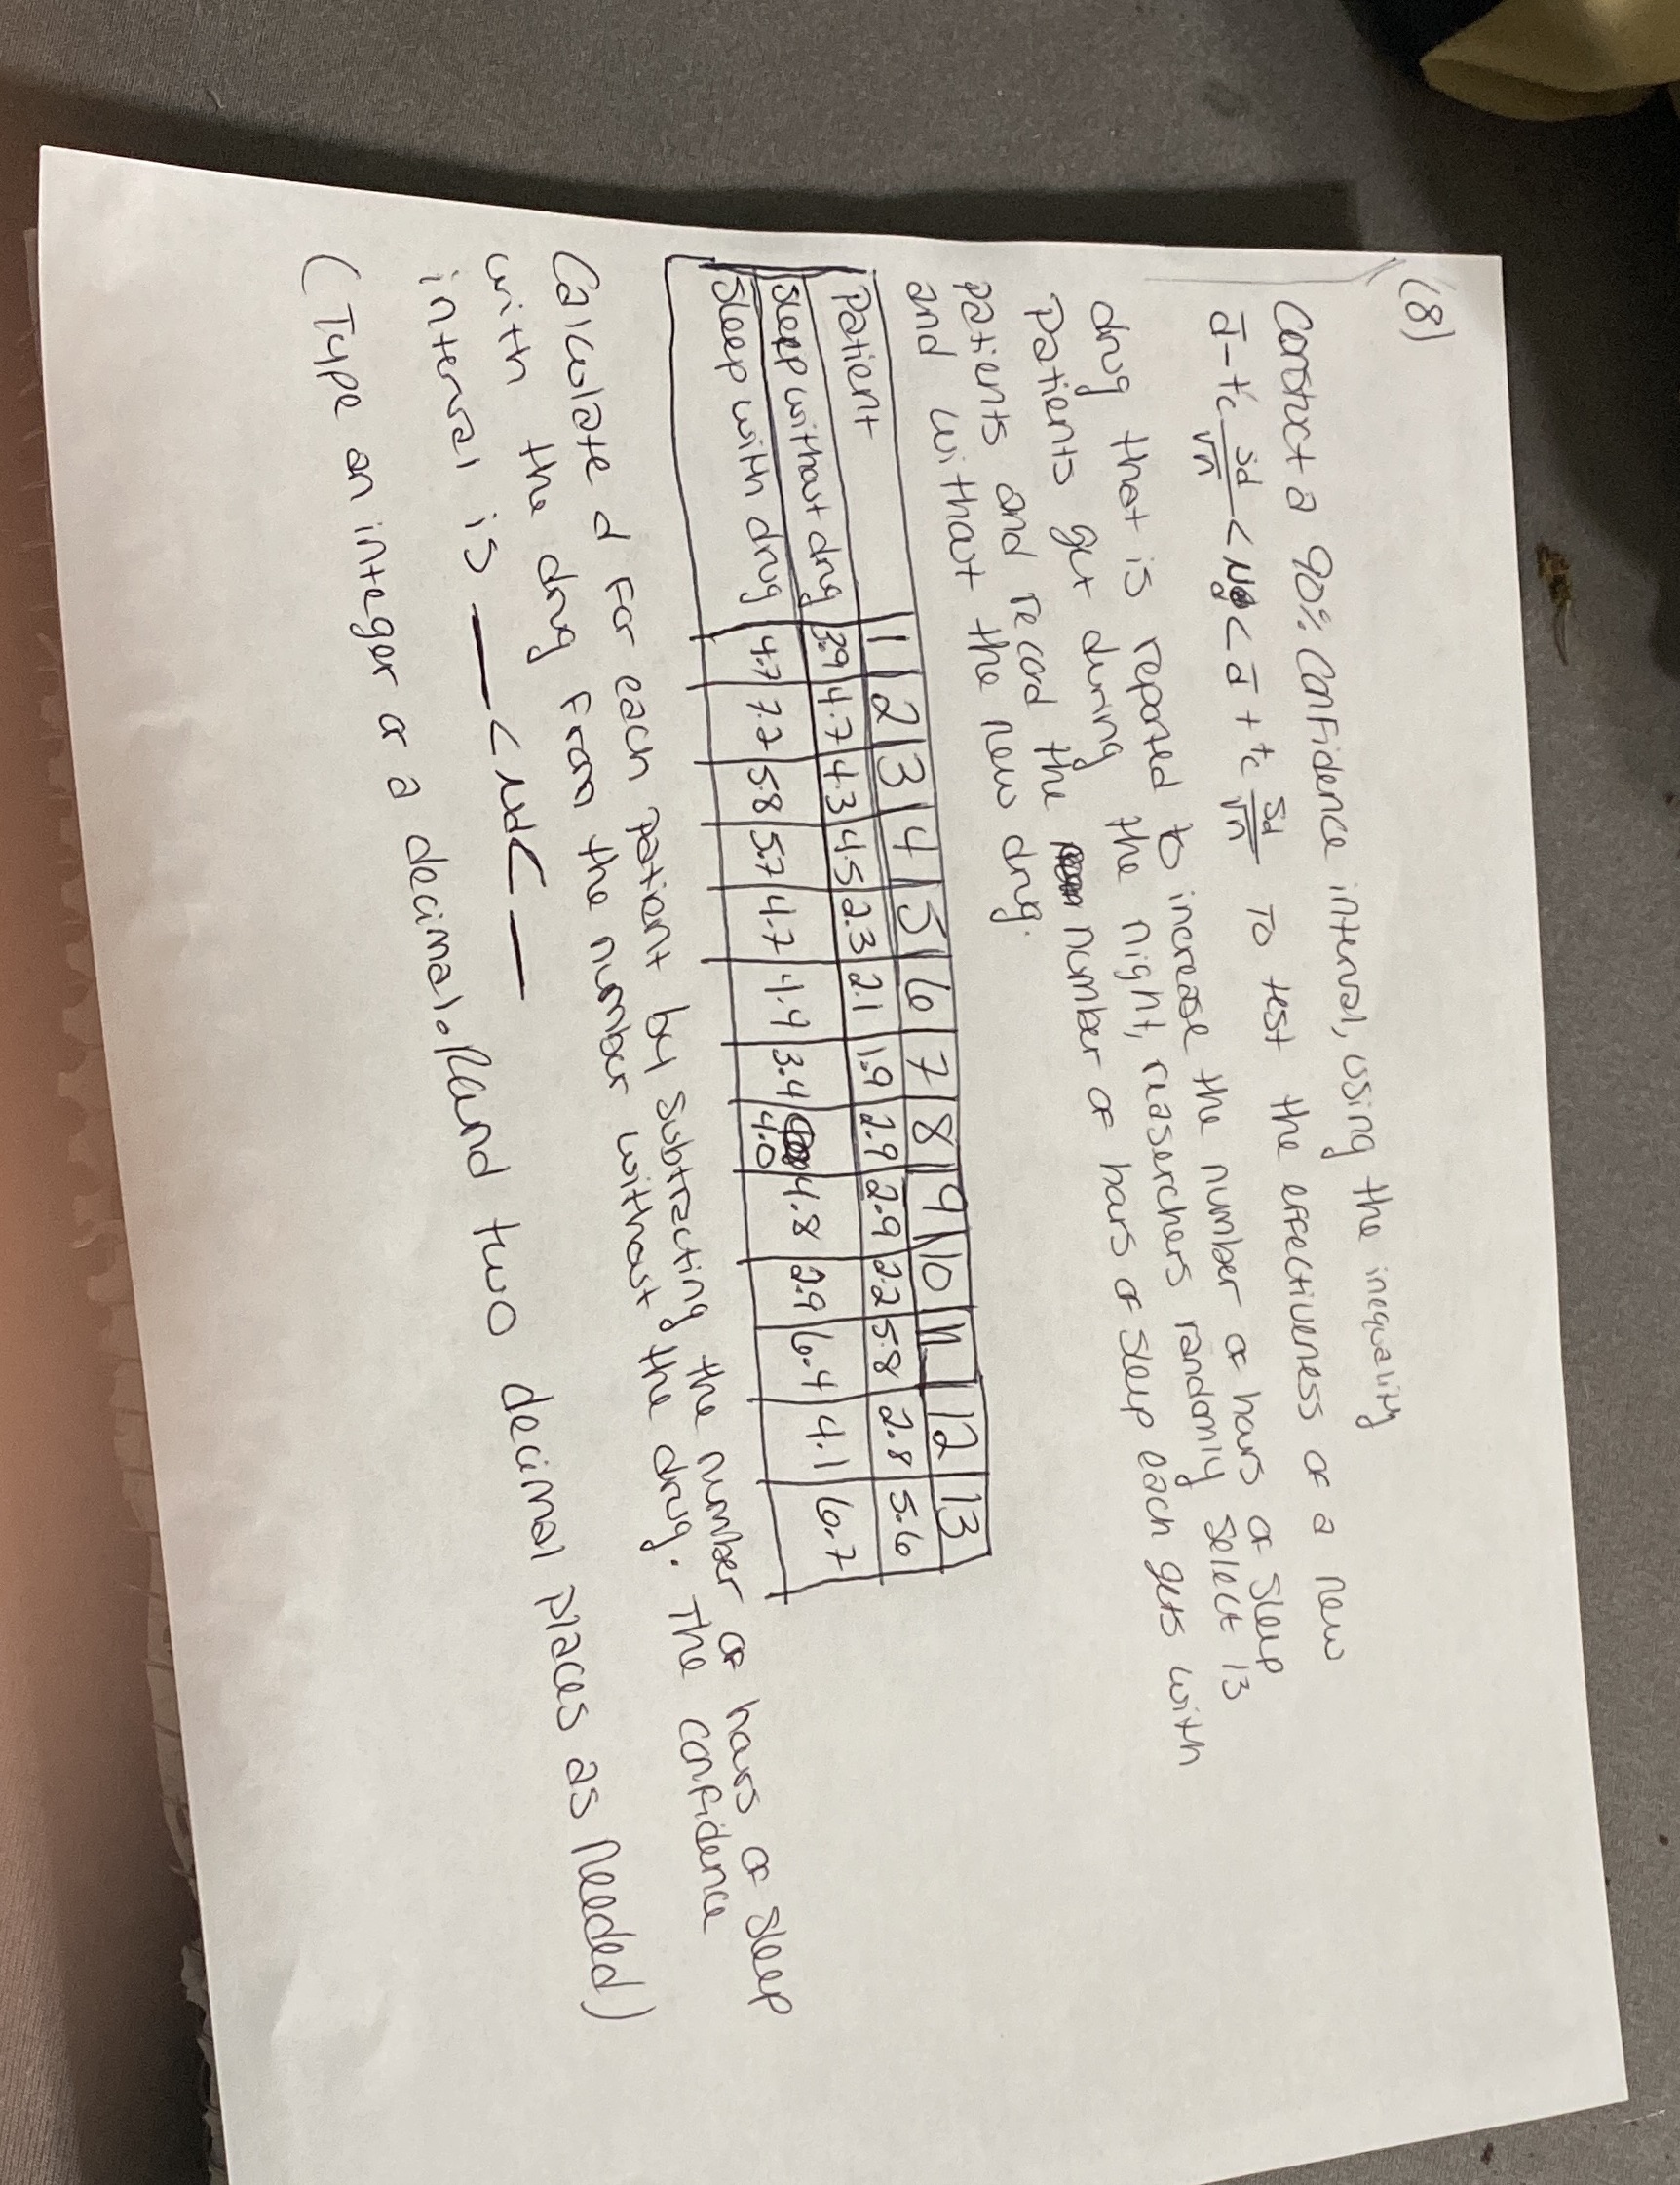 (8)
Constuct a 90% confidence interval, using the inequality
d̄ - tc sd/√n < μd < d̄ + tc sd/√n to test the effectiveness of a new
drug that is reported to increase the number of hours of sleep
patients get during the night, reaserchers randomly select 13
patients and record the number of hours of sleep each gets with
and without the new drug.
Patient | 1 | 2 | 3 | 4 | 5 | 6 | 7 | 8 | 9 | 10 | 11 | 12 | 13
Sleep without drug | 3.9 | 4.7 | 4.3 | 4.5 | 2.3 | 2.1 | 1.9 | 2.9 | 2.9 | 2.2 | 5.8 | 2.8 | 5.6
Sleep with drug | 4.7 | 7.2 | 5.8 | 5.7 | 4.7 | 4.4 | 3.4 | 4.0 | 4.8 | 2.9 | 6.4 | 4.1 | 6.7
Calculate d for each patient by subtracting the number of hours of sleep
with the drug from the number without the drug. The confidence
interval is __ < μd < __
(Type an integer or a decimal. Round two decimal places as needed)